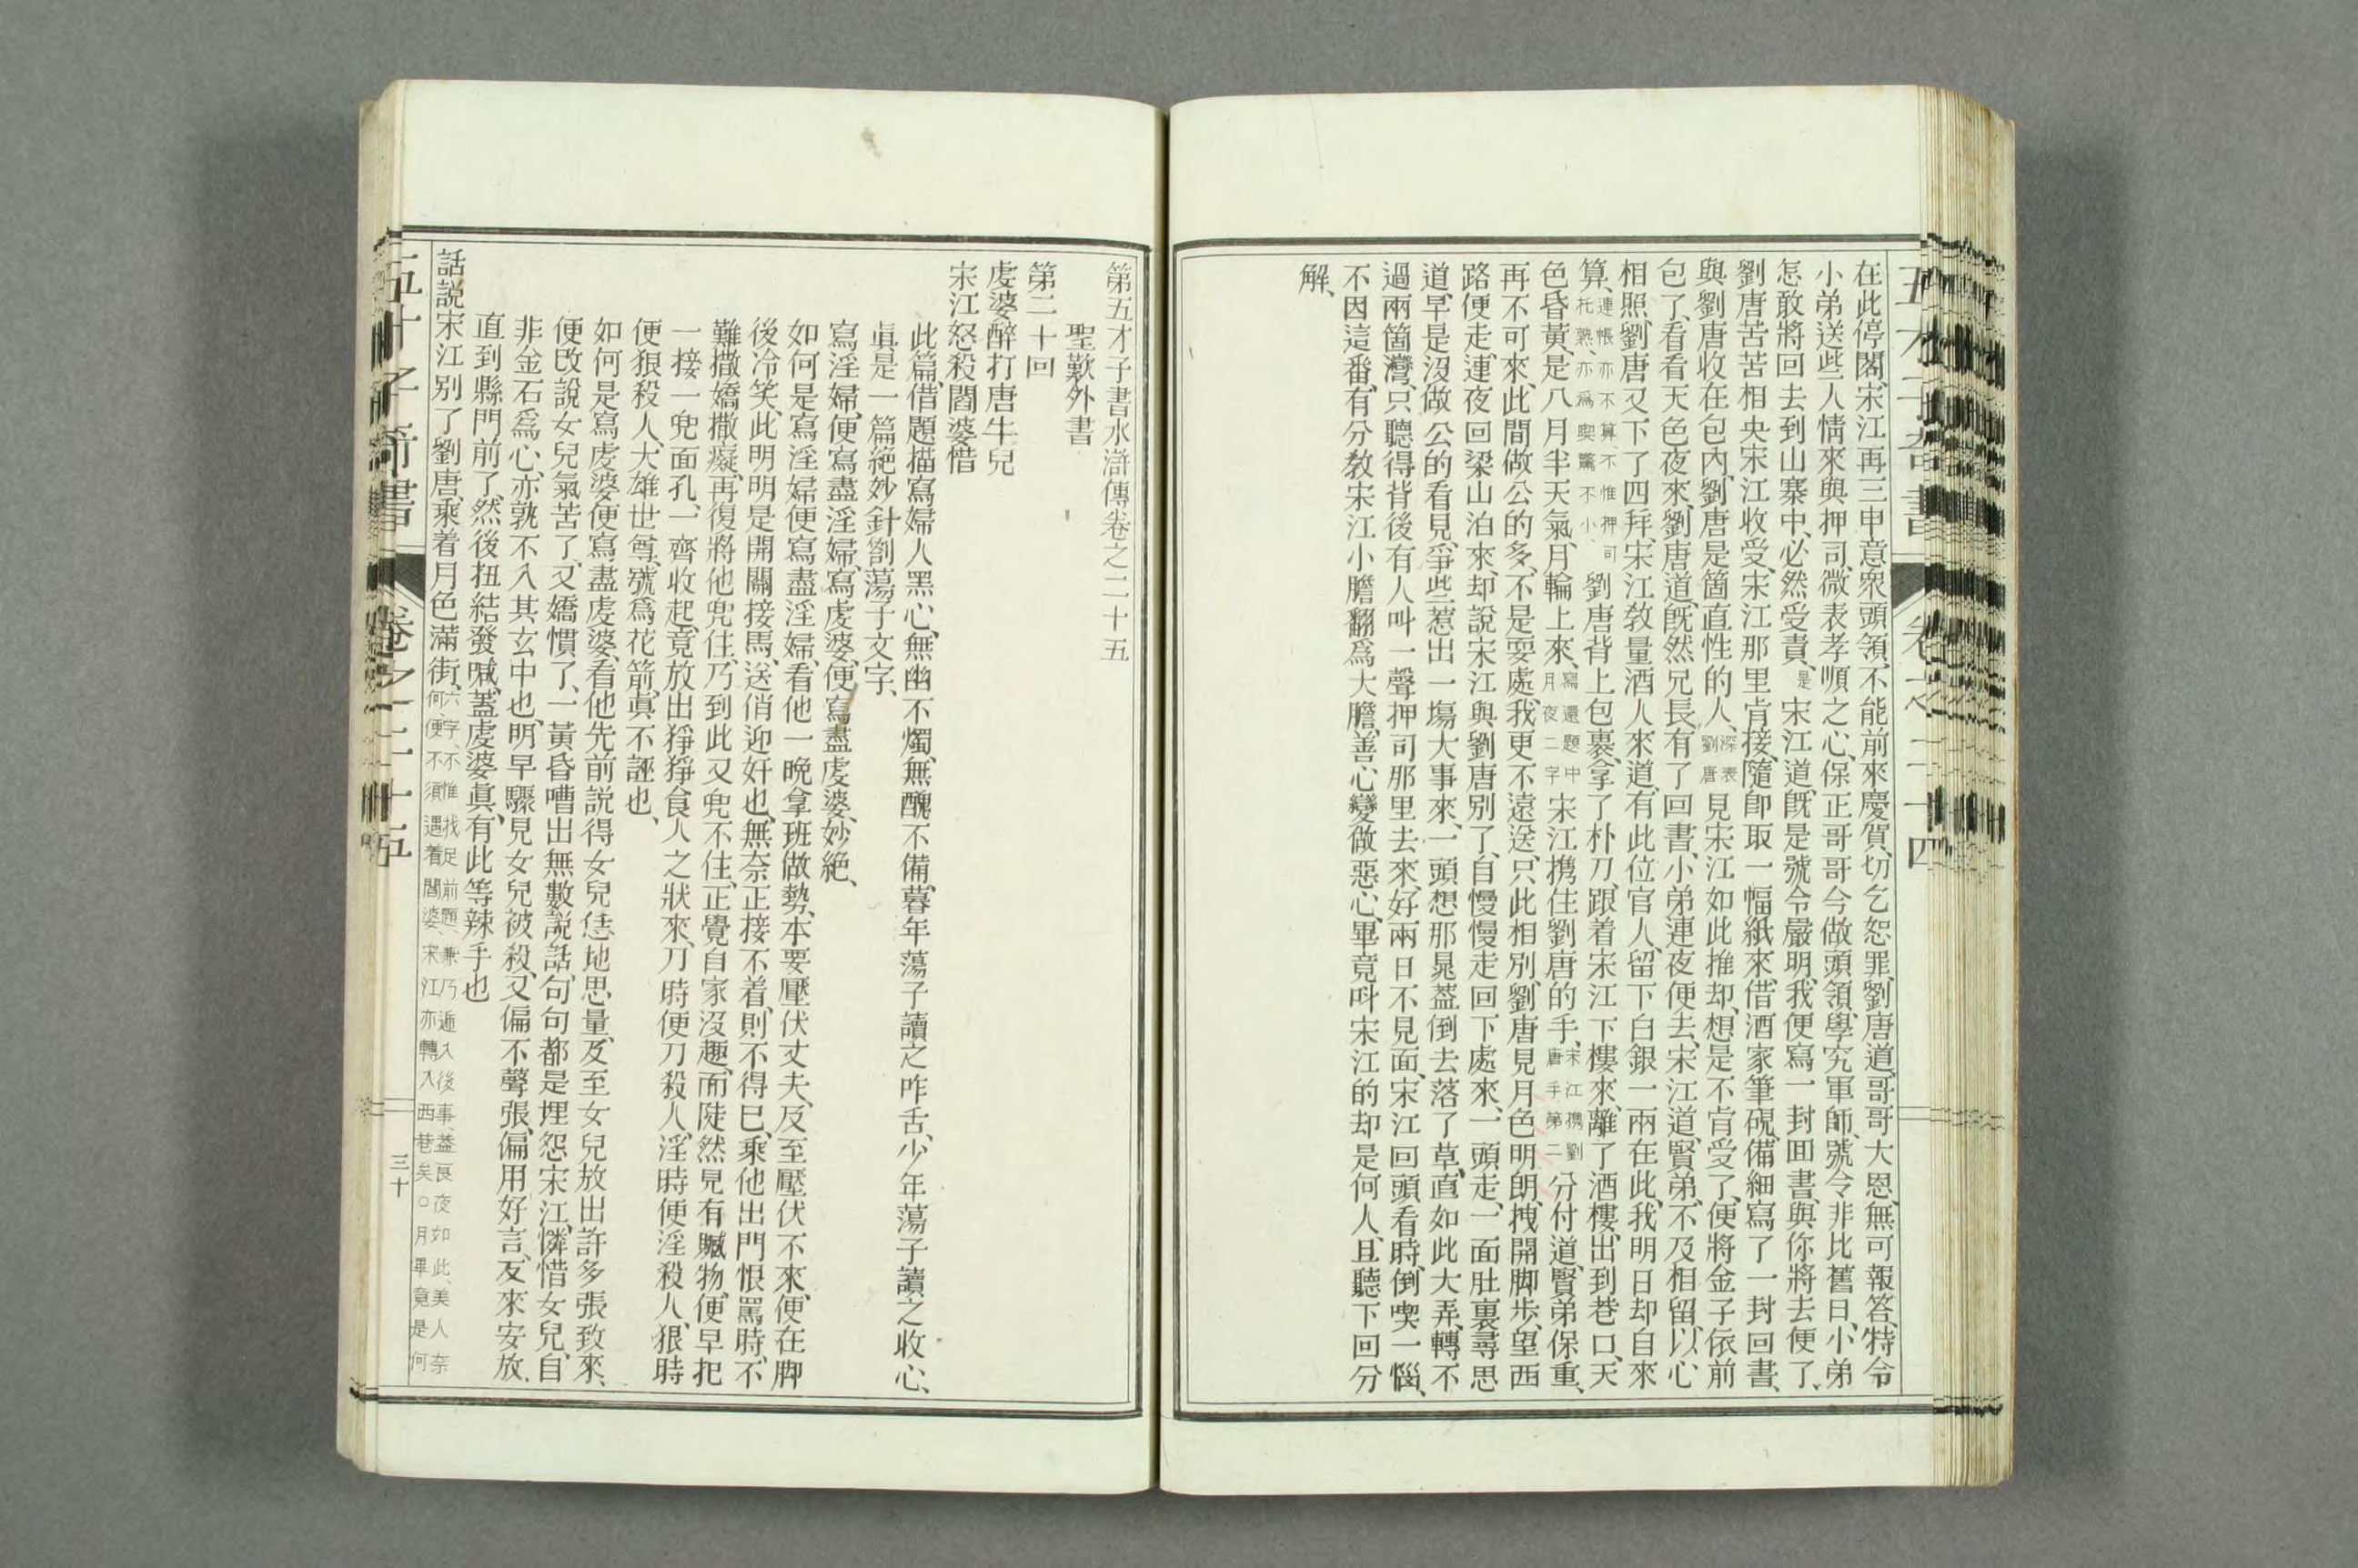 在此停閣、宋江再三申意衆頭領、不能前來慶賀、切乞恕罪、劉唐道、哥哥大恩、無可報答、特令
小弟送些人情來與押司、微表孝順之心、保正哥哥今做頭領、學究軍師、號令非比舊日、小弟
怎敢將回去到山寨中、必然受責、是宋江道、旣是號令嚴明、我便寫一封囬書、與你將去便了、
劉唐苦苦相央宋江收受、宋江那里肯接、隨卽取一幅紙來、借酒家筆硯、備細寫了一封回書、
與劉唐收在包內、劉唐是箇直性的人、深表劉唐見宋江如此推却、想是不肯受了、便將金子依前
包了、看看天色夜來、劉唐道、旣然兄長有了回書、小弟連夜便去、宋江道、賢弟、不及相留、以心
相照、劉唐又下了四拜、宋江敎量酒人來道、有此位官人、留下白銀一兩在此、我明日却自來
算、連帳亦不算、不惟押司托熟、亦爲喫驚不小、劉唐背上包裹、拿了朴刀、跟着宋江下樓來、離了酒樓、出到巷口、天
色昏黃、是八月半天氣、月輪上來、寫還題中月夜二字宋江攜住劉唐的手、宋江攜劉唐手第二分付道、賢弟保重、
再不可來、此間做公的多、不是耍處、我更不遠送、只此相別、劉唐見月色明朗、拽開脚步、望西
路便走、連夜回梁山泊來、却說宋江與劉唐別了、自慢慢走回下處來、一頭走、一面肚裏尋思
道、早是沒做公的看見、爭些惹出一塲大事來、一頭想那晁葢倒去落了草、直如此大弄、轉不
過兩箇灣、只聽得背後有人叫一聲押司那里去來、好兩日不見面、宋江回頭看時、倒喫一惱、
不因這番、有分敎宋江小膽翻爲大膽、善心變做惡心、畢竟叫宋江的却是何人、且聽下回分
解、
五才子奇書 卷之二十四
第五才子書水滸傳卷之二十五
聖歎外書
第二十回
虔婆醉打唐牛兒
宋江怒殺閻婆惜
此篇、借題描寫婦人黑心、無幽不燭、無醜不備、暮年蕩子讀之咋舌、少年蕩子讀之收心、
眞是一篇絶妙針劄蕩子文字、
寫淫婦、便寫盡淫婦、寫虔婆、便寫盡虔婆、妙絶、
如何是寫淫婦便寫盡淫婦、看他一晩拿班做勢、本要壓伏丈夫、及至壓伏不來、便在脚
後冷笑、此明明是開關接馬、送俏迎奸也、無奈正接不着、則不得巳、乘他出門恨罵時、不
難撒嬌撒癡、再復將他兜住、乃到此又兜不住、正覺自家沒趣、而陡然見有贓物、便早把
一接一兜面孔、一齊收起、竟放出猙猙食人之狀來、刀時便刀殺人、淫時便淫殺人、狠時
便狠殺人、大雄世尊、號爲花箭、眞不誣也、
如何是寫虔婆便寫盡虔婆、看他先前說得女兒恁地思量、及至女兒放出許多張致來、
便改說女兒氣苦了、又嬌慣了、一黃昏嘈出無數說話、句句都是埋怨宋江、憐惜女兒、自
非金石爲心、亦孰不入其玄中也、明早驟見女兒被殺、又偏不聲張、偏用好言、反來安放、
直到縣門前了、然後扭結發喊、葢虔婆眞有此等辣手也
話說宋江別了劉唐、乘着月色滿街、六字、不惟找足前題、兼乃遞入後事、葢良夜如此、美人奈何、便不須遇着閻婆、宋江亦轉入西巷矣○月畢竟是何
五才子奇書 卷之二十五 三十